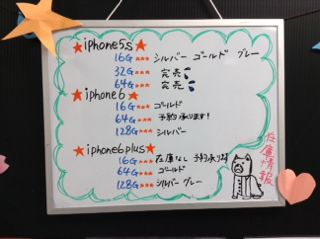 ★iphone5s★
16G★★★ シルバー ゴールド グレー
32G★★★ 完売
64G★★★ 完売
★iphone6★
16G★★★ ゴールド
64G★★★ 予約承ります!
128G★★★ シルバー
★iphone6plus★
16G★★★ 在庫なし 予約承ります
64G★★★ ゴールド
128G★★★ シルバー グレー
在庫情報